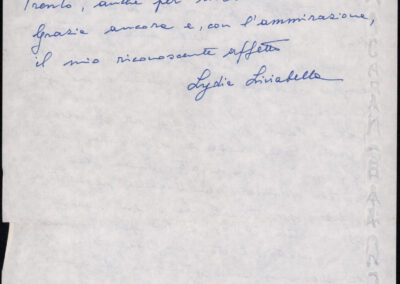 anche per
Grazie ancora e, con l'ammirazione,
il mio riconoscente affetto
Lydia Liviabella